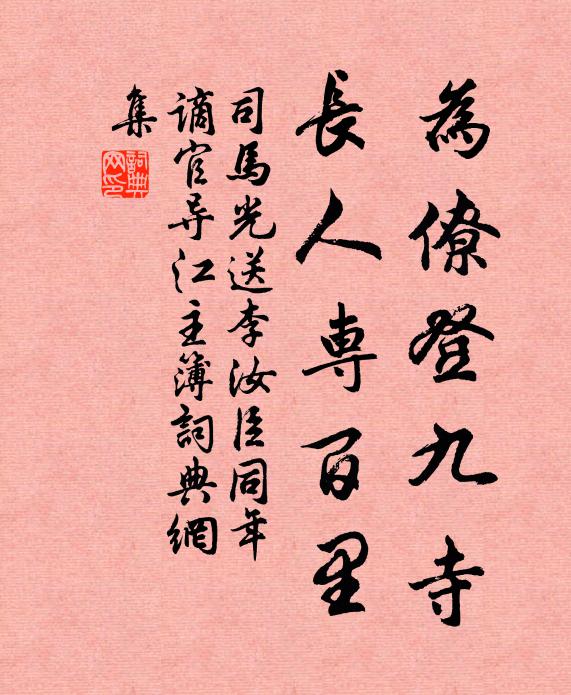 為僚登九寺
長人專百里
司馬光送李汝臣同年
谪官导江主簿詞典網
集
詞典
网印